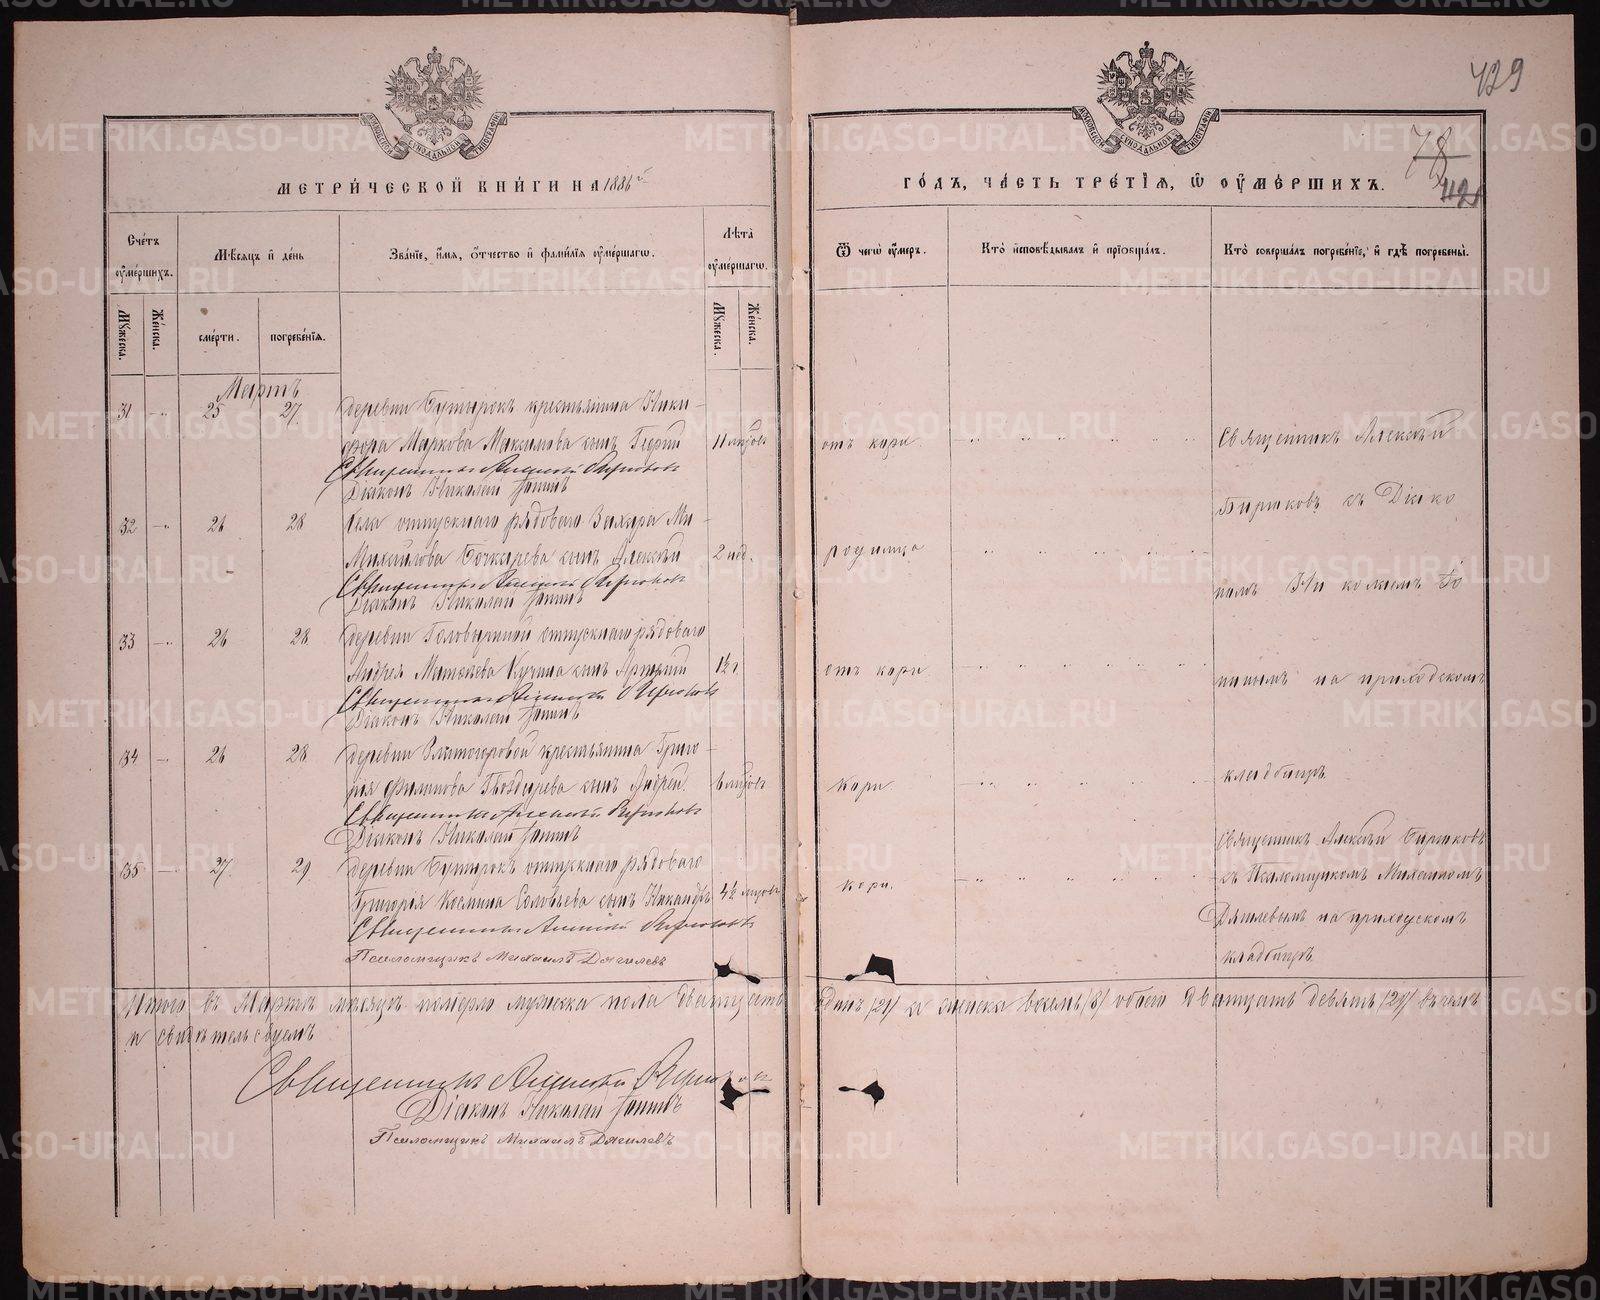 429
78
112
МЕТРИЧЕСКОЙ КНИГИ НА 1886й
ГОДЪ, ЧАСТЬ ТРЕТІЯ, Ѿ ОУМЕРШИХЪ.
Счетъ оумершихъ.
Мѣсяцъ и день
Званіе, имя, отчество и фамилія оумершагѡ.
Лѣта оумершагѡ.
Ѿ чегѡ оумеръ.
Кто исповѣдывалъ и пріобщалъ.
Кто совершалъ погребеніе, и гдѣ погребены.
Мужеска.
Женска.
смерти.
погребенія.
Мужеска.
Женска.
Мартъ
31 25 27 деревни Бутырокъ крестьянина Ники-
фора Маркова Максимова сынъ 11 мцовъ отъ кори
Священникъ Алексѣй Бирюковъ
Діаконъ Николай
32 26 28 Села отпускнаго рядоваго Захара Ми-
Михайлова Бочкарева сынъ Алексѣй 2 нед. родимца
Священникъ Алексѣй Бирюковъ
Діаконъ Николай
33 26 28 деревни отпускнаго рядоваго
Андрея сынъ Артемій 1½ г. отъ кори
Священникъ Алексѣй Бирюковъ
Діаконъ Николай
34 26 28 деревни Златогоровой крестьянина Григо-
рія Филипова Гвоздырева сынъ Андрей 6 мцовъ кори
Священникъ Алексѣй Бирюковъ
Діаконъ Николай
35 27 29 деревни Бутырокъ отпускнаго рядоваго
Григорія Космина Соловьева сынъ Никандръ 4½ мцовъ кори.
Священникъ Алексѣй Бирюковъ
Псаломщикъ Михаилъ Дягилевъ
Священникъ Алексѣй
Бирюковъ съ Діако
номъ Николаемъ По
повымъ на приходскомъ
кладбищѣ
Священникъ Алексѣй Бирюковъ
съ Псаломщикомъ Михаиломъ
Дягилевымъ на приходскомъ
кладбищѣ
Итого въ Мартѣ мѣсяцѣ померло мужеска пола двадцать одинъ /21/ а женска восемь /8/ обоего двадцать девять /29/ въ чемъ
и свидѣтельствуемъ
Священникъ Алексѣй Бирюковъ
Діаконъ Николай
Псаломщикъ Михаилъ Дягилевъ
METRIKI.GASO-URAL.RU